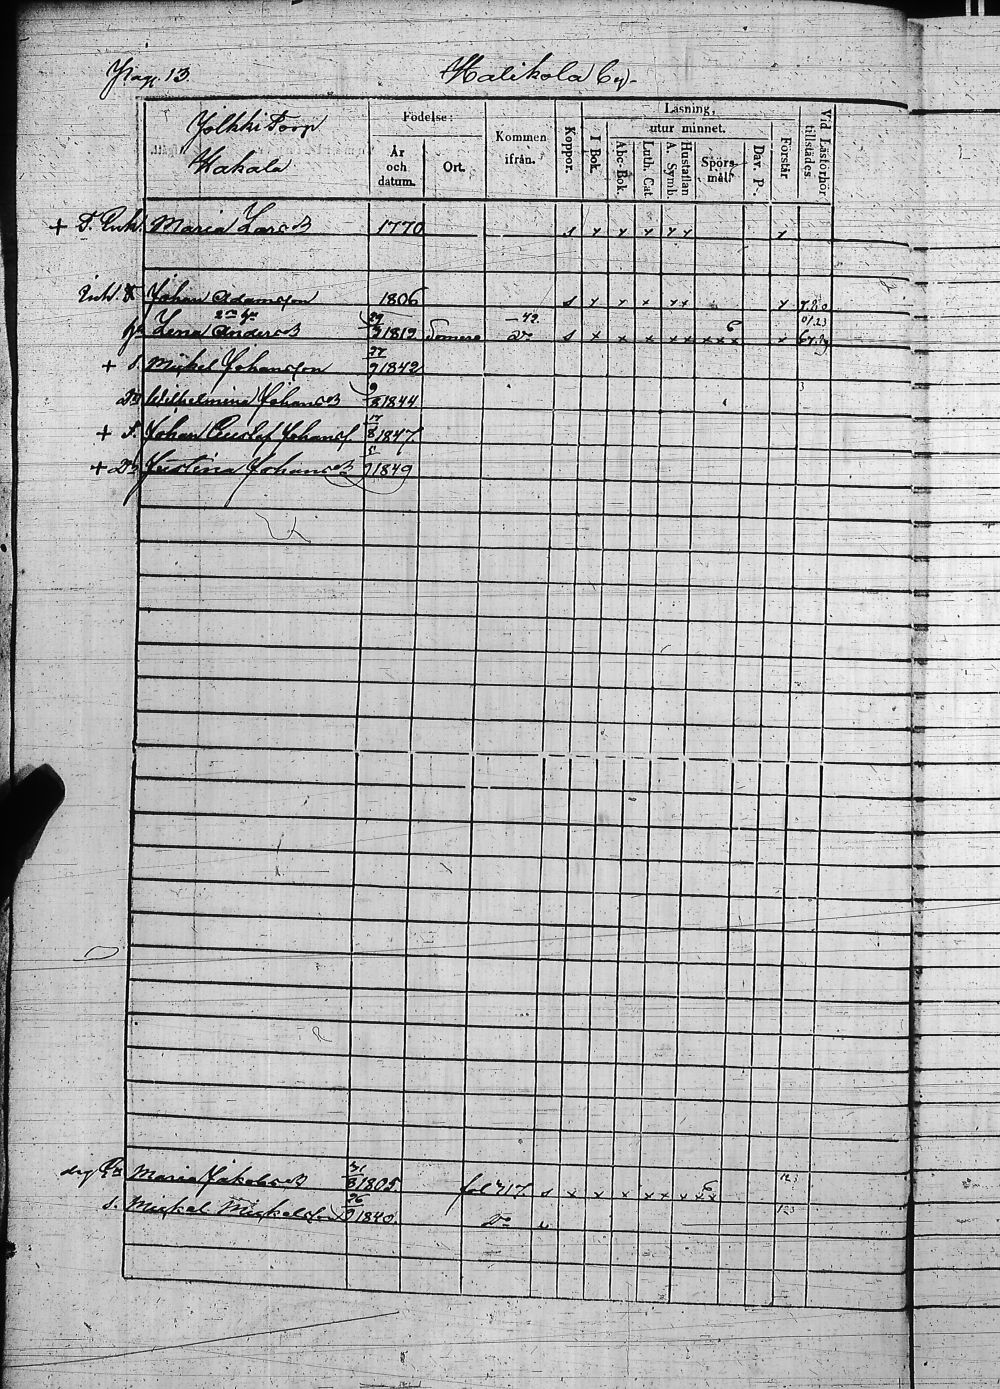 Pag. 13 Halikola By.
Jolkki Torp
Hakala
Födelse:
År och datum.
Ort.
Kommen ifrån.
Koppor.
Läsning,
I Bok.
utur minnet.
Abc-Bok.
Luth. Cat.
Hustaflan A. Symb.
Spörs- mål.
Dav. P.
Förstår
Vid Läsförhör tillstädes.
+ Maria Larsd 1770 s x x x x x x
Johan Adamsson 1806 s x x x x x x
2:a h:u
Lena Andersd 29/3 1812 Somero -42 s x x x x x x x x x
+ S. Mickel Johansson 27/9 1842
Dr Wilhelmina Johansd 9/3 1844
+ S. Johan Gustaf Johanss. 17/8 1847
+ Dr Justina Johansd 1849
Maria Jakobsd 31/3 1805. fol 717. s x x x x x x x x 123
s. Mickel Mickelsson 26/9 1840. Do 123